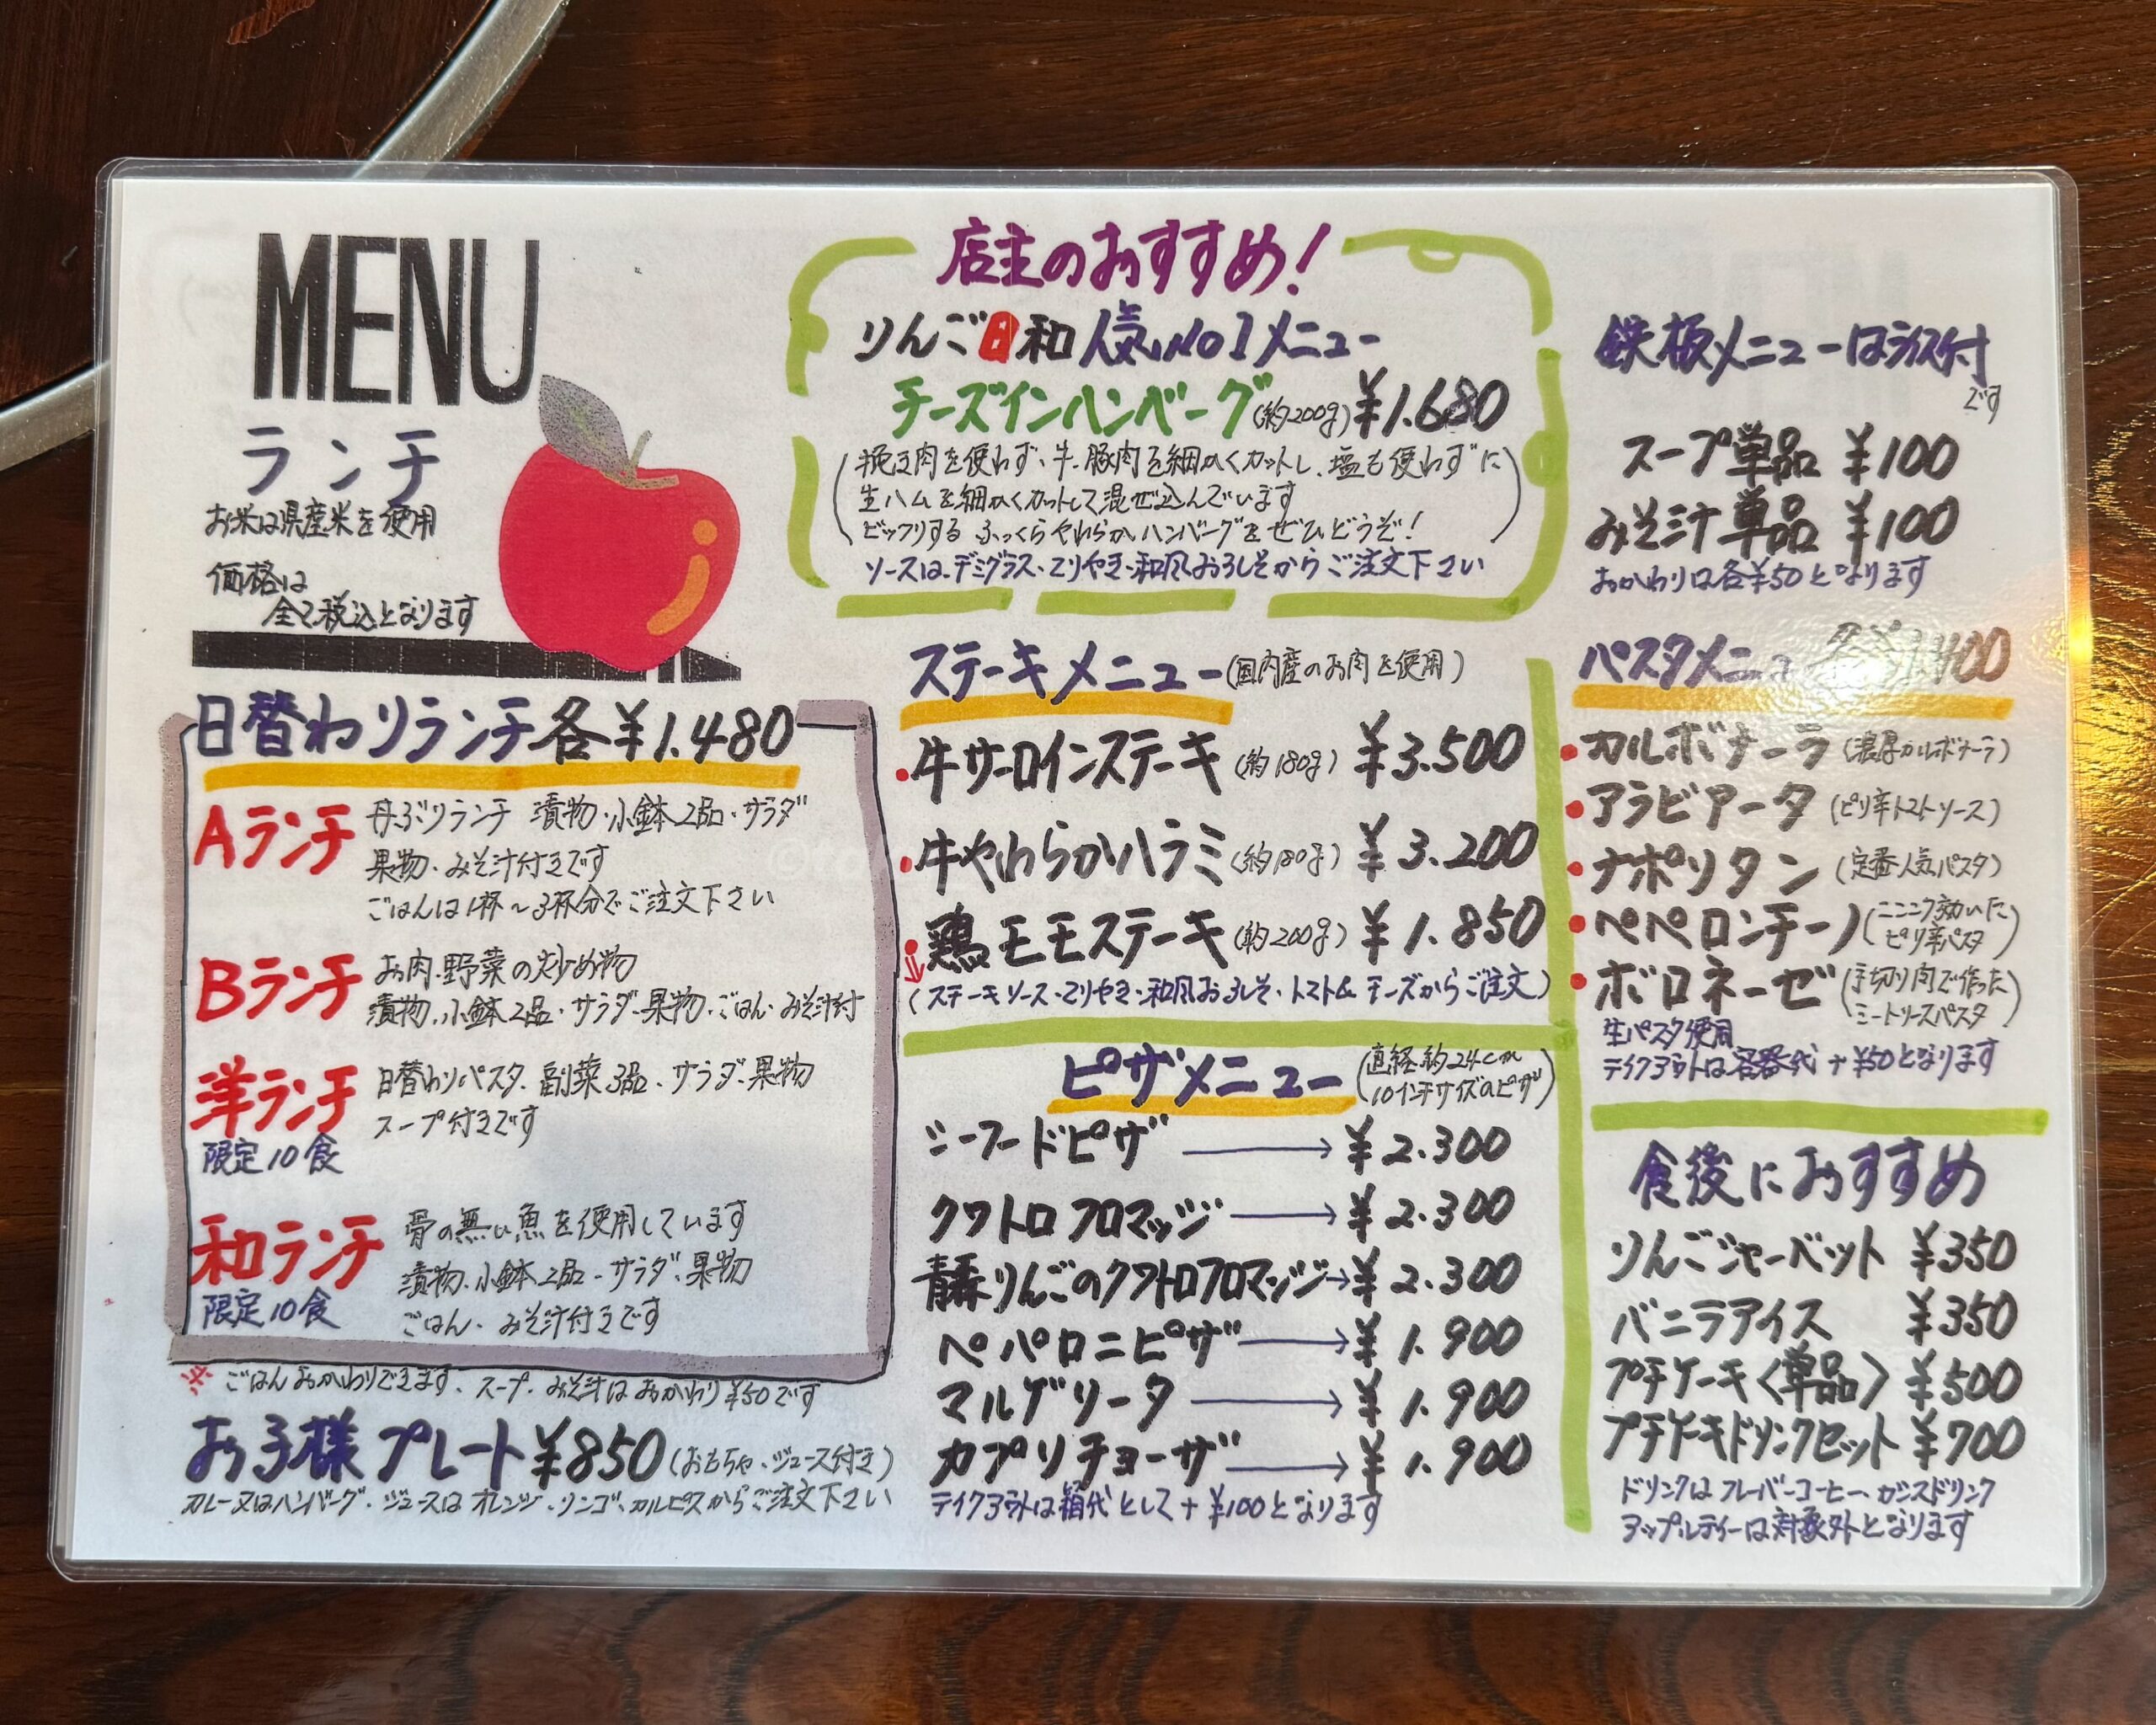 MENU
ランチ
お米は県産米を使用
価格は
全て税込となります
日替わりランチ各¥1.480
Aランチ 丼ぶりランチ 漬物・小鉢2品・サラダ
果物・みそ汁付きです
ごはんは1杯〜3杯分でご注文下さい
Bランチ お肉・野菜の炒め物
漬物・小鉢2品・サラダ・果物・ごはん・みそ汁付
洋ランチ 日替わりパスタ・副菜3品・サラダ・果物
スープ付きです
限定10食
和ランチ 骨の無い魚を使用しています
漬物・小鉢2品・サラダ・果物
ごはん・みそ汁付きです
限定10食
※ごはんおかわりできます、スープ・みそ汁はおかわり¥50です
お子様プレート¥850(おもちゃ・ジュース付き)
カレー又はハンバーグ・ジュースはオレンジ・リンゴ・カルピスからご注文下さい
店主のおすすめ!
りんご日和人気No1メニュー
チーズインハンバーグ(約200g)¥1.680
(挽き肉を使わず、牛・豚肉を細かくカットし、塩も使わずに
生ハムを細かくカットして混ぜ込んでいます
ビックリするふっくらやわらかハンバーグをぜひどうぞ!)
ソースは、デミグラス・てりやき・和風おろしそからご注文下さい
ステーキメニュー(国内産のお肉を使用)
・牛サーロインステーキ(約180g)¥3.500
・牛やわらかハラミ(約180g)¥3.200
・鶏モモステーキ(約200g)¥1.850
↓(ステーキソース・てりやき・和風おろしそ・トマト&チーズからご注文)
ピザメニュー(直径約24cm
10インチサイズのピザ)
シーフードピザ→¥2.300
クワトロフロマッジ→¥2.300
青森りんごのクワトロフロマッジ→¥2.300
ペパロニピザ→¥1.900
マルゲリータ→¥1.900
カプリチョーザ→¥1.900
テイクアウトは箱代として+¥100となります
鉄板メニューはライス付
です
スープ単品 ¥100
みそ汁単品 ¥100
おかわりは各¥50となります
パスタメニュー 各¥1.400
・カルボナーラ(濃厚カルボナーラ)
・アラビアータ(ピリ辛トマトソース)
・ナポリタン(定番人気パスタ)
・ペペロンチーノ(ニンニク効いた
ピリ辛パスタ)
・ボロネーゼ(手切り肉で作った
ミートソースパスタ)
生パスタ使用
テイクアウトは容器代+¥50となります
食後におすすめ
りんごシャーベット ¥350
バニラアイス ¥350
プチケーキ〈単品〉¥500
プチケーキドリンクセット ¥700
ドリンクはフレーバーコーヒー、ガンスドリンク
アップルティーは対象外となります